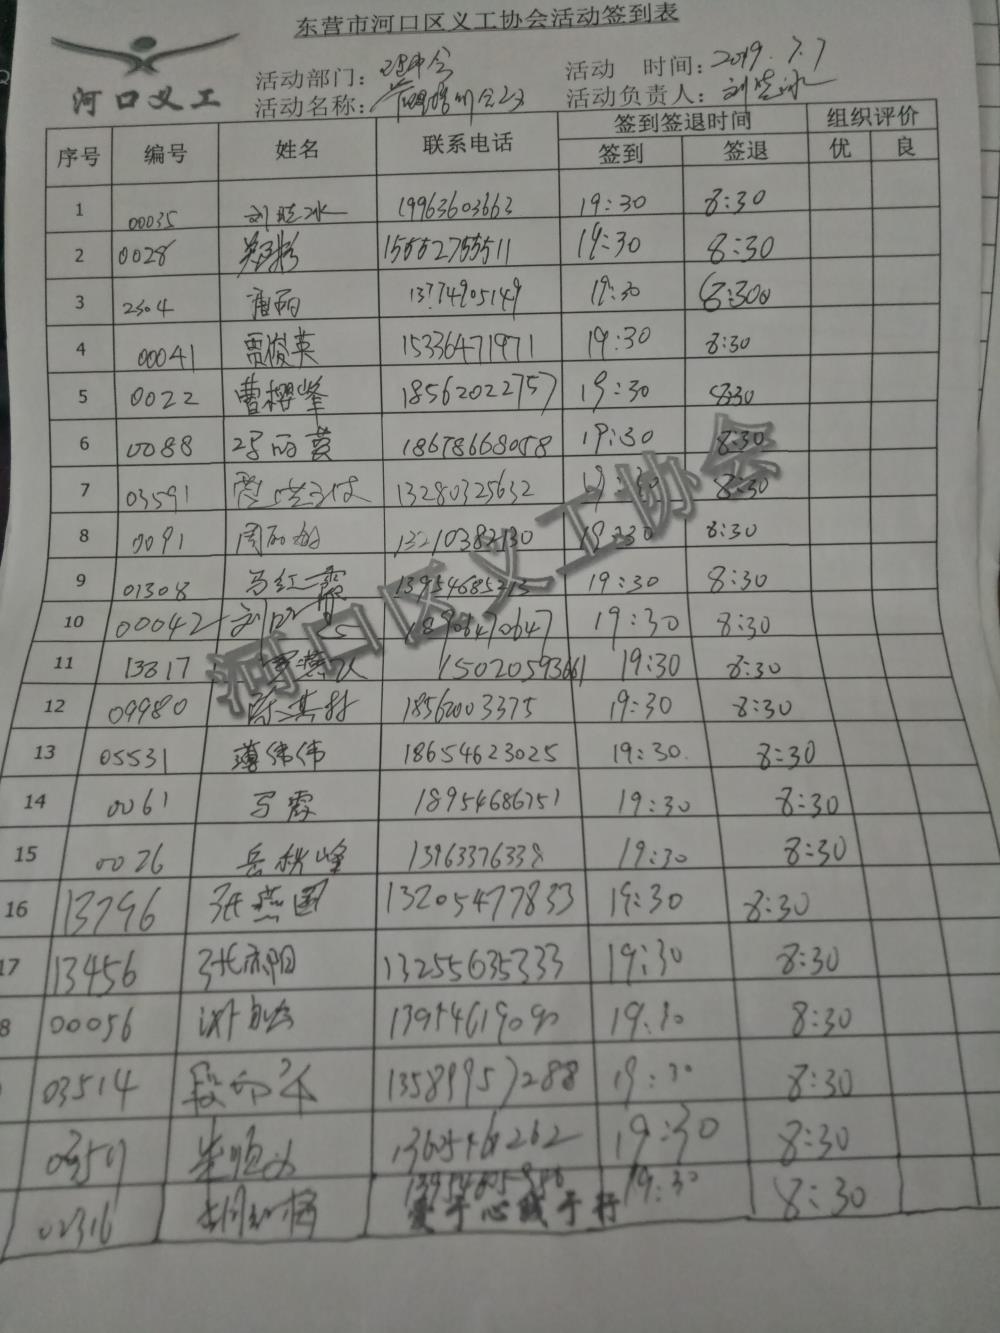 东营市河口区义工协会活动签到表
河口义工
活动部门： 理事会 活动 时间：2019.7.7
活动名称： 会议 活动负责人：刘晓冰
序号 编号 姓名 联系电话 签到签退时间 组织评价
签到 签退 优 良
1 00035 刘晓冰 19963603663 19:30 8:30
2 0028 15552755511 19:30 8:30
3 2304 唐丽 13774905149 19:30 8:30
4 00041 贾俊英 15336471971 19:30 8:30
5 0022 曹樱峰 18562022757 19:30 8:30
6 0088 18678668058 19:30 8:30
7 03591 13280325632 19:30 8:30
8 0091 周丽 13210382130 19:30 8:30
9 01308 马红霞 13954685213 19:30 8:30
10 00042 刘 18906470647 19:30 8:30
11 13817 15020593661 19:30 8:30
12 09980 18562003375 19:30 8:30
13 05531 薄伟伟 18654623025 19:30 8:30
14 0061 马霞 18954686751 19:30 8:30
15 0026 岳树峰 13963376338 19:30 8:30
16 13796 张燕国 13205477833 19:30 8:30
17 13456 张亦阳 13255635333 19:30 8:30
8 00056 13954619090 19:30 8:30
03514 段 13589957288 19:30 8:30
19:30 8:30
02316 19:30 8:30
爱于心践于行
河口区义工协会